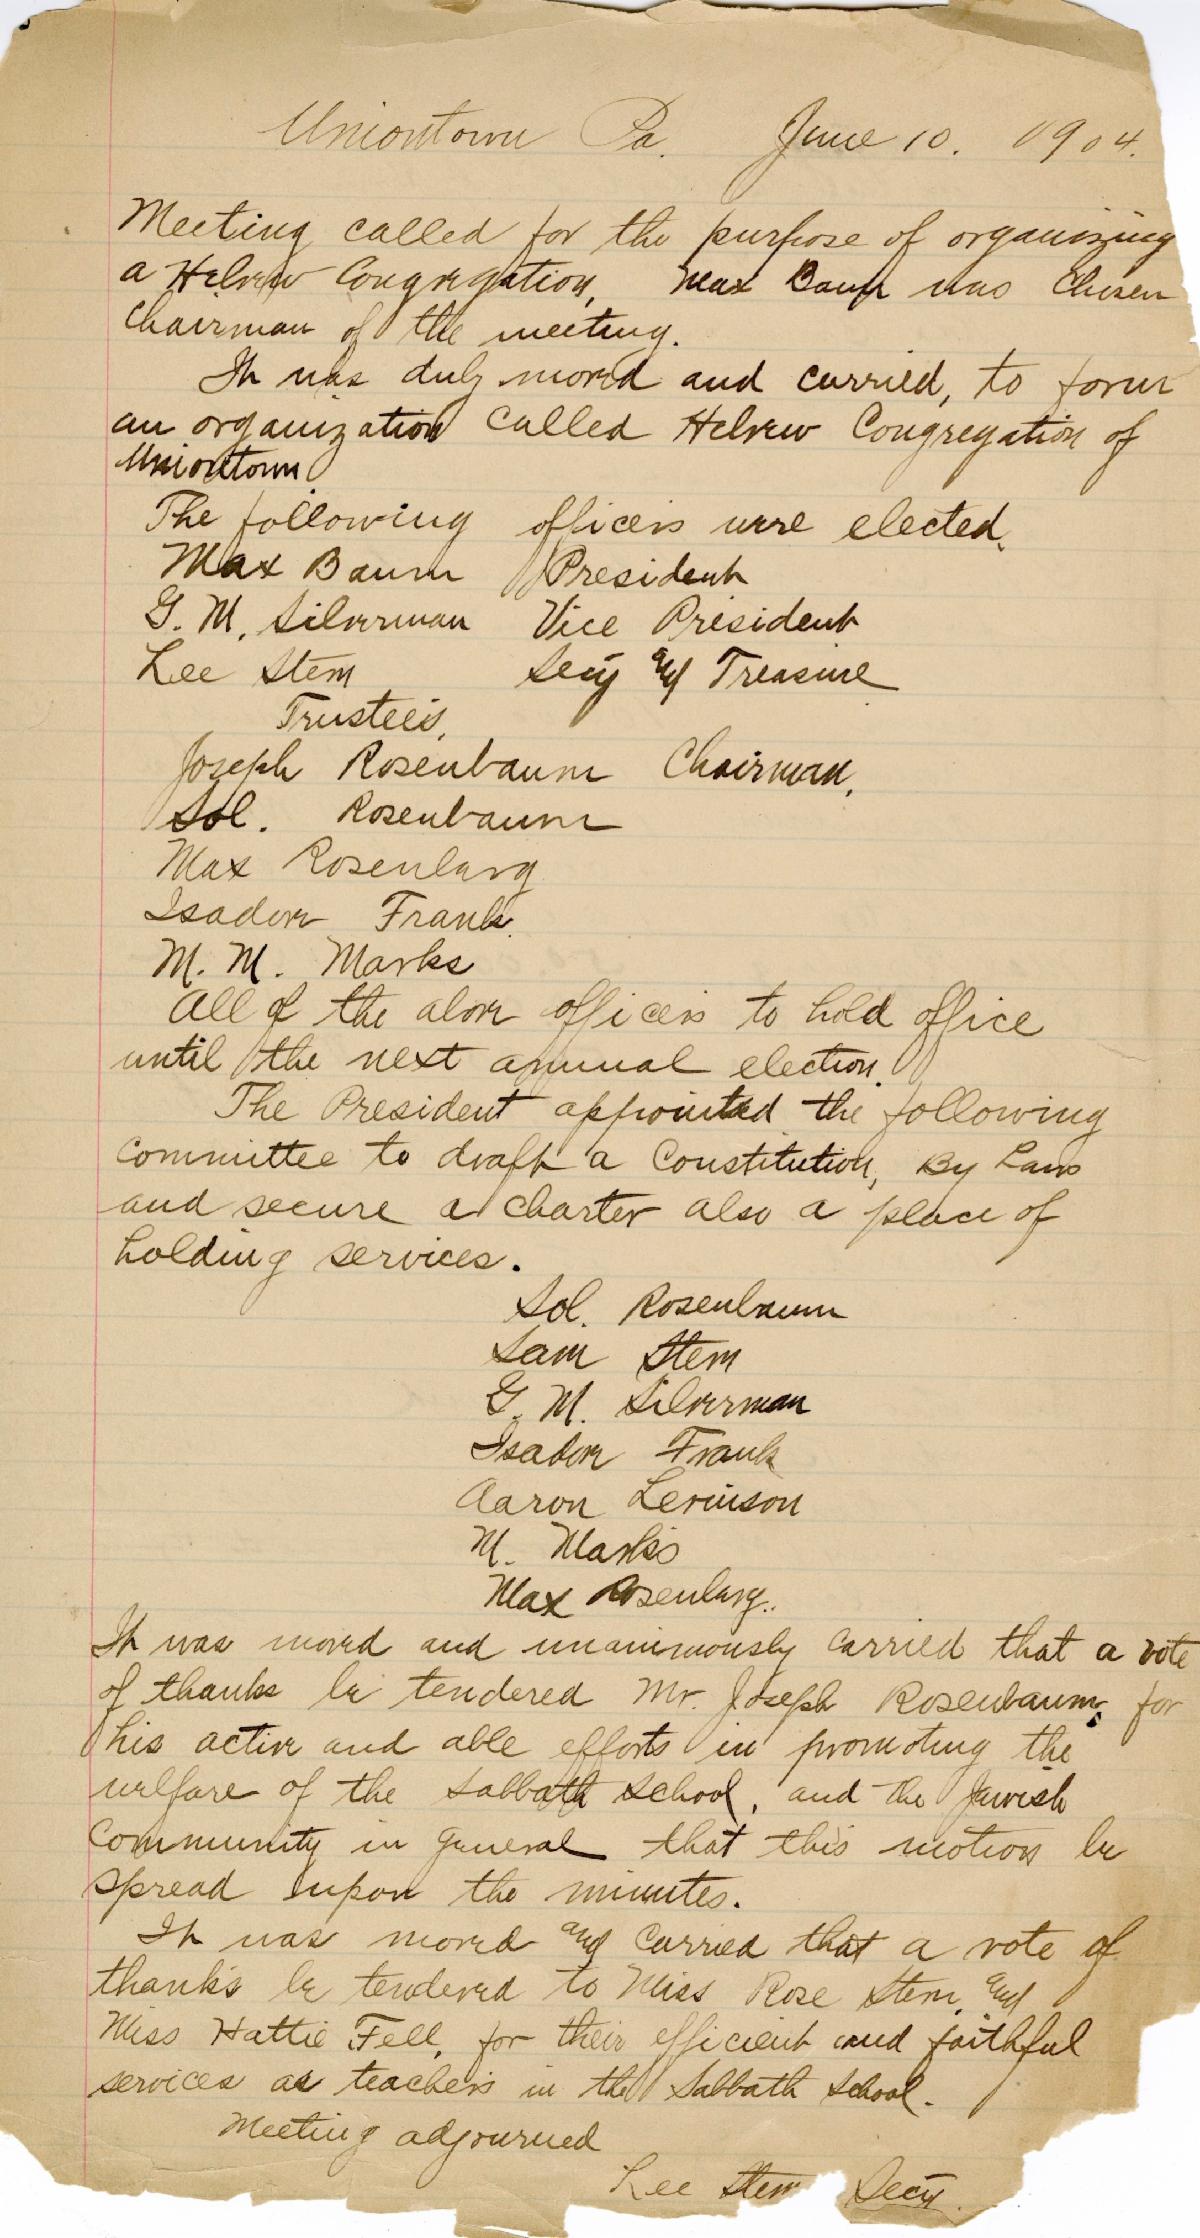 Uniontown Pa. June 10. 1904.
Meeting called for the purpose of organizing
a Hebrew Congregation, Max Baum was Chosen
Chairman of the meeting.
It was duly moved and carried, to form
an organization called Hebrew Congregation of
Uniontown
The following officers were elected.
Max Baum President
G. M. Silverman Vice President
Lee Stern Secy and Treasure
Trustees,
Joseph Rosenbaum Chairman,
Sol. Rosenbaum
Max Rosenberg
Isadore Frank
M. M. Marks
All of the above officers to hold office
until the next annual election.
The President appointed the following
Committee to draft a Constitution, By Laws
and secure a charter also a place of
holding services.
Sol. Rosenbaum
Sam Stern
G. M. Silverman
Isadore Frank
Aaron Levinson
M. Marks
Max Rosenberg.
It was moved and unanimously carried that a vote
of thanks be tendered Mr. Joseph Rosenbaum, for
his active and able efforts in promoting the
welfare of the Sabbath School, and the Jewish
Community in general that this motion be
spread upon the minutes.
It was moved and carried that a vote of
thanks be tendered to Miss Rose Stern, and
Miss Hattie Fell, for their efficient and faithful
services as teachers in the Sabbath School.
Meeting adjourned
Lee Stern Secy.